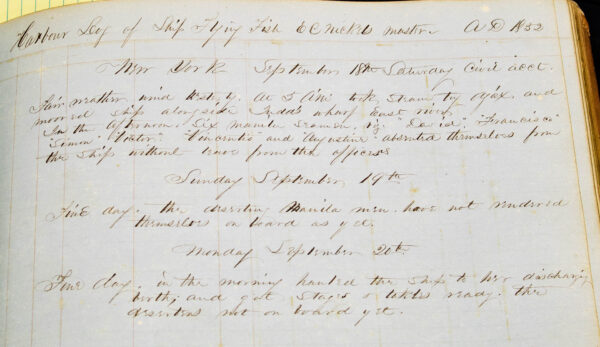 Harbour Log of Ship Flying Fish E C Nickels master. A D 1852
New York September 18th Saturday Civil acct.
Fair weather wind Westerly. At 5 A.M. took Steam tug Ajax. and
moored Ship alongside wharf East river
In the afternoon Six manila Seamen, "David" "Francisco"
"Simon" and "Augustine" absented themselves from
the Ship without leave from the officers
Sunday September 19th
Fine day. the deserting Manila men. have not rendered
themselves on board as yet.
Monday September 20th.
Fine day. in the morning hauled the Ship to her discharging
berth; and got Stages & tackles ready. the
deserters not on board yet.